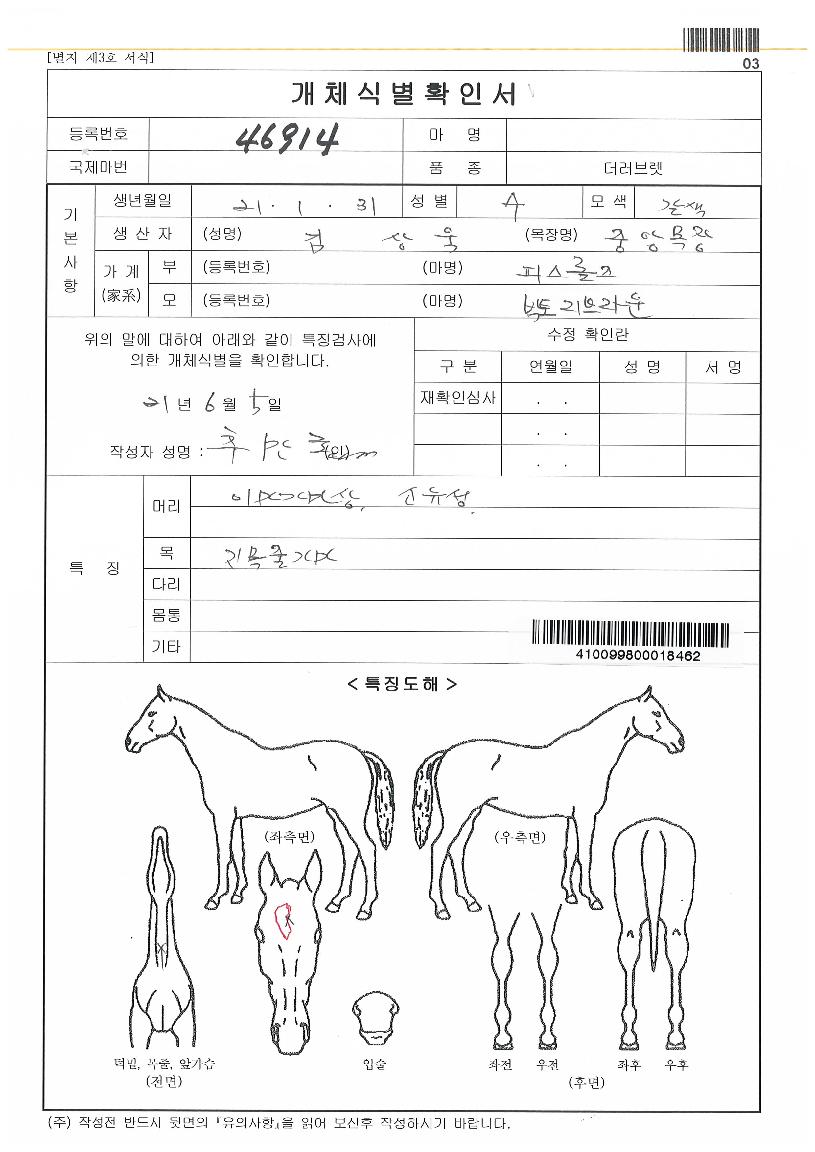 [별지 제3호 서식]
03
개체식별확인서
등록번호 46914 마 명
국제마번 품 종 더러브렛
기본사항
생년월일 21 . 1 . 31 성 별 수 모 색 갈색
생 산 자 (성명) 김 상 욱 (목장명) 중앙목장
가 계 (家系) 부 (등록번호) (마명) 피스룰즈
모 (등록번호) (마명) 빅토리브라운
위의 말에 대하여 아래와 같이 특징검사에
의한 개체식별을 확인합니다.
21년 6월 5일
작성자 성명 :
수정 확인란
구 분 언월일 성 명 서 명
재확인심사 . .
. .
. .
특 징
머리
목
다리
몸통
기타
410099800018462
< 특징도해 >
(좌측면) (우측면)
턱밑, 목줄, 앞가슴 입술 좌전 우전 좌후 우후
(전면) (후면)
(주) 작성전 반드시 뒷면의 『유의사항』을 읽어 보신후 작성하시기 바랍니다.